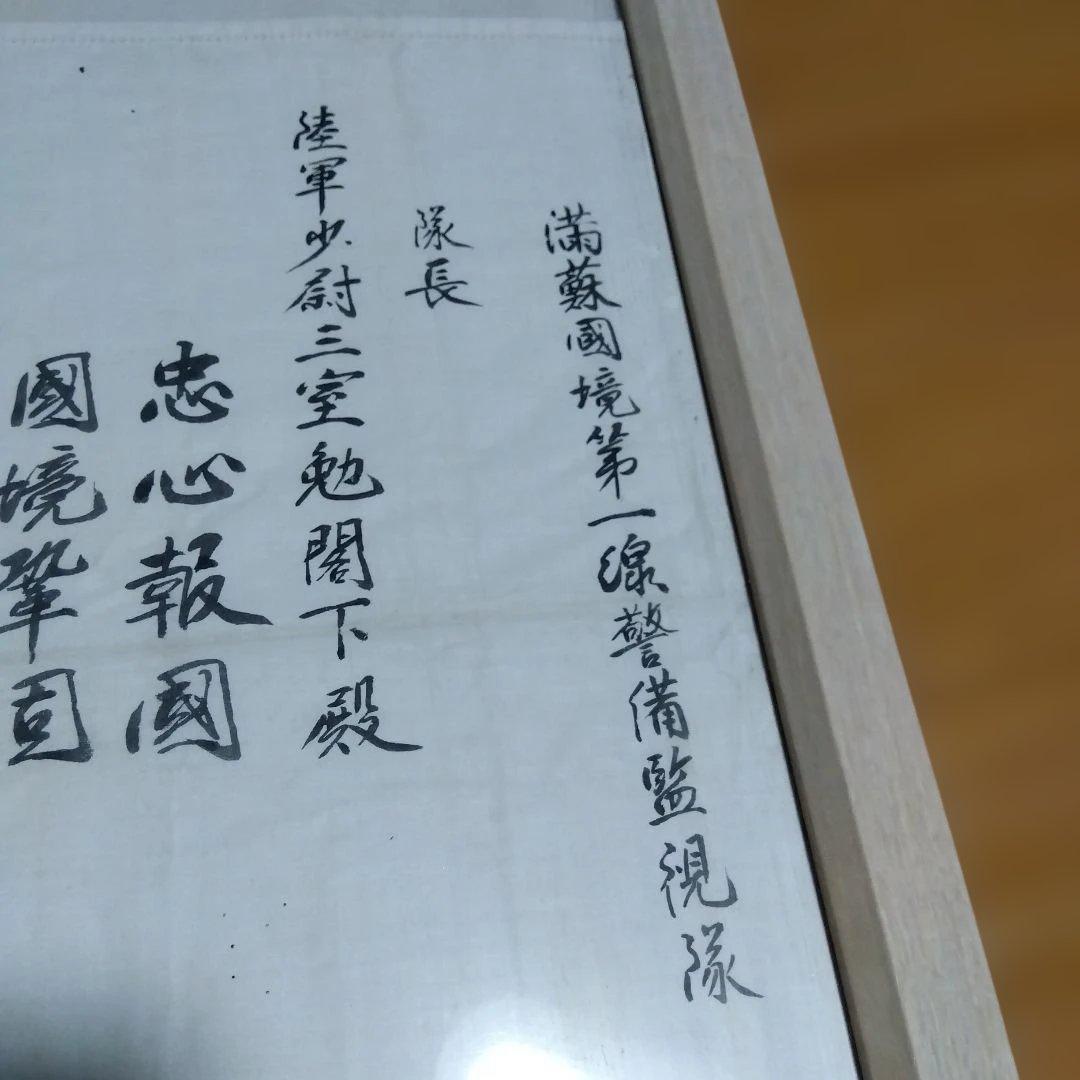 満蘇國境第一線警備監視隊
隊長
陸軍少尉三室勉閣下殿
忠心報國
國境鞏固